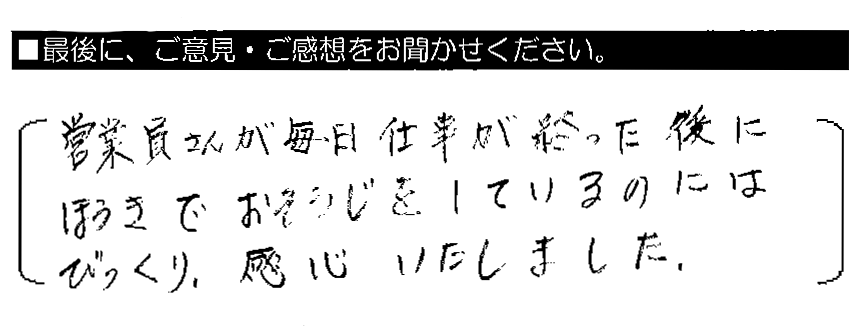 ■最後に、ご意見・ご感想をお聞かせください。
営業員さんが毎日仕事が終った後に
ほうきでおそうじをしているのには
びっくり、感心いたしました。